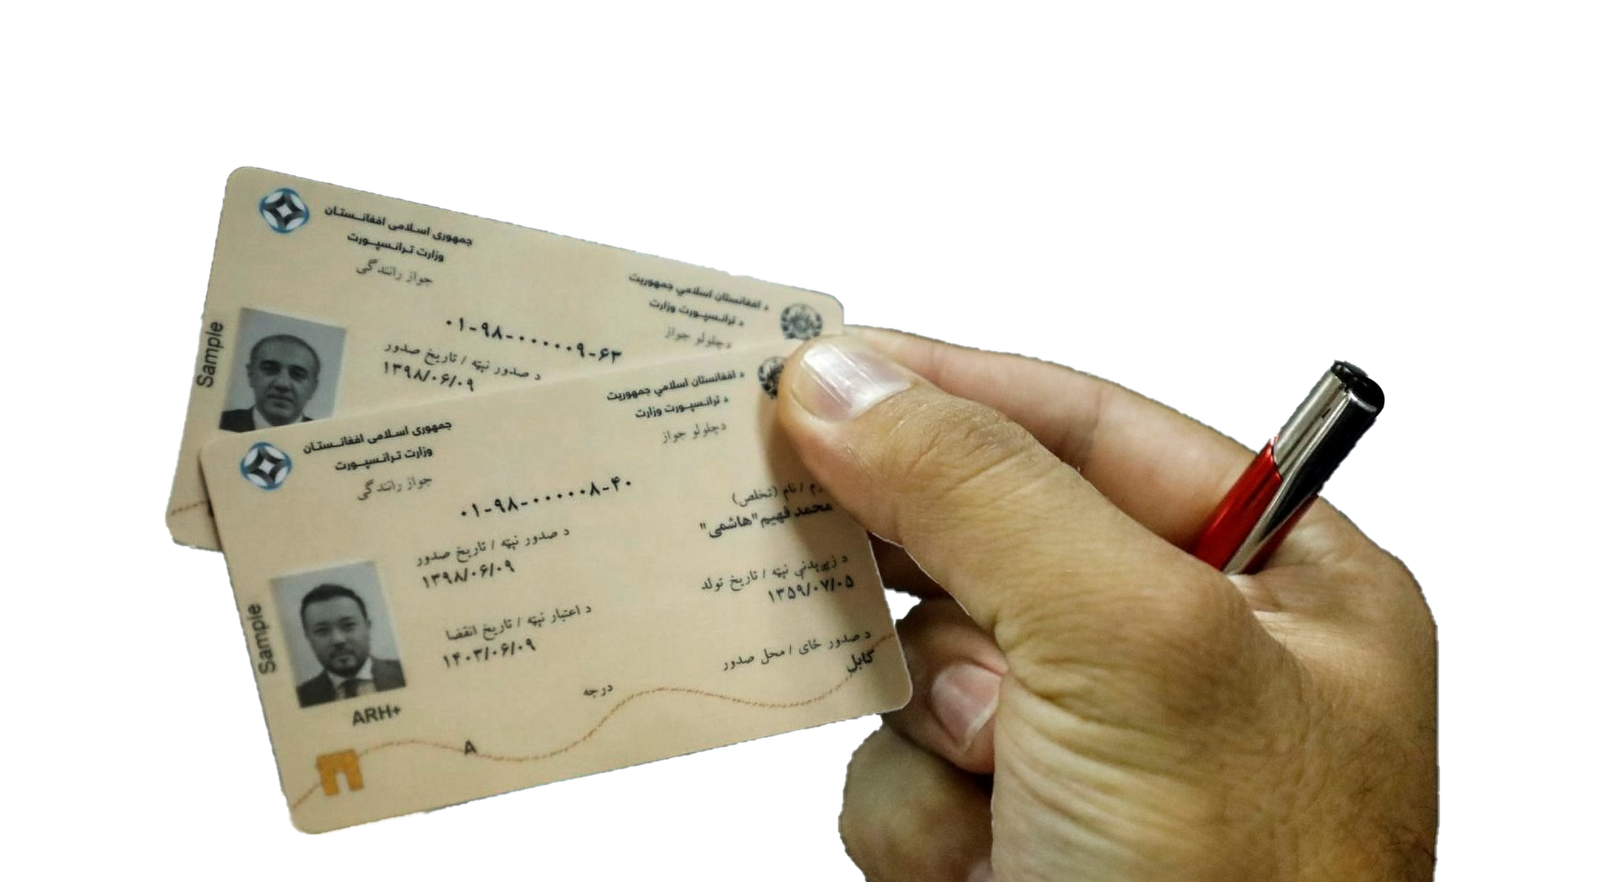 جمهوری اسلامی افغانستان
وزارت ترانسپورت
جواز رانندگی
د افغانستان اسلامي جمهوریت
د ترانسپورت وزارت
د چلولو جواز
۰۱-۹۸-۰۰۰۰۰۹-۶۳
د صدور نېټه / تاریخ صدور
۱۳۹۸/۰۶/۰۹
Sample
د افغانستان اسلامي جمهوریت
د ترانسپورت وزارت
د چلولو جواز
جمهوری اسلامی افغانستان
وزارت ترانسپورت
جواز رانندگی
۰۱-۹۸-۰۰۰۰۰۸-۴۰
/ نام (تخلص)
محمد فهیم "هاشمی"
د صدور نېټه / تاریخ صدور
۱۳۹۸/۰۶/۰۹
د زېږېدنې نېټه / تاریخ تولد
۱۳۵۹/۰۷/۰۵
د اعتبار نېټه / تاریخ انقضا
۱۴۰۳/۰۶/۰۹
د صدور ځای / محل صدور
کابل
درجه
A
Sample
ARH+